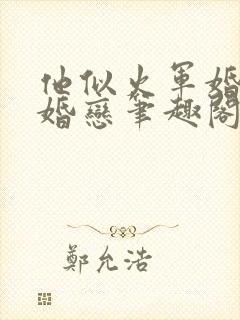 他似火军婚
婚戀筆趣閣
鄭允浩